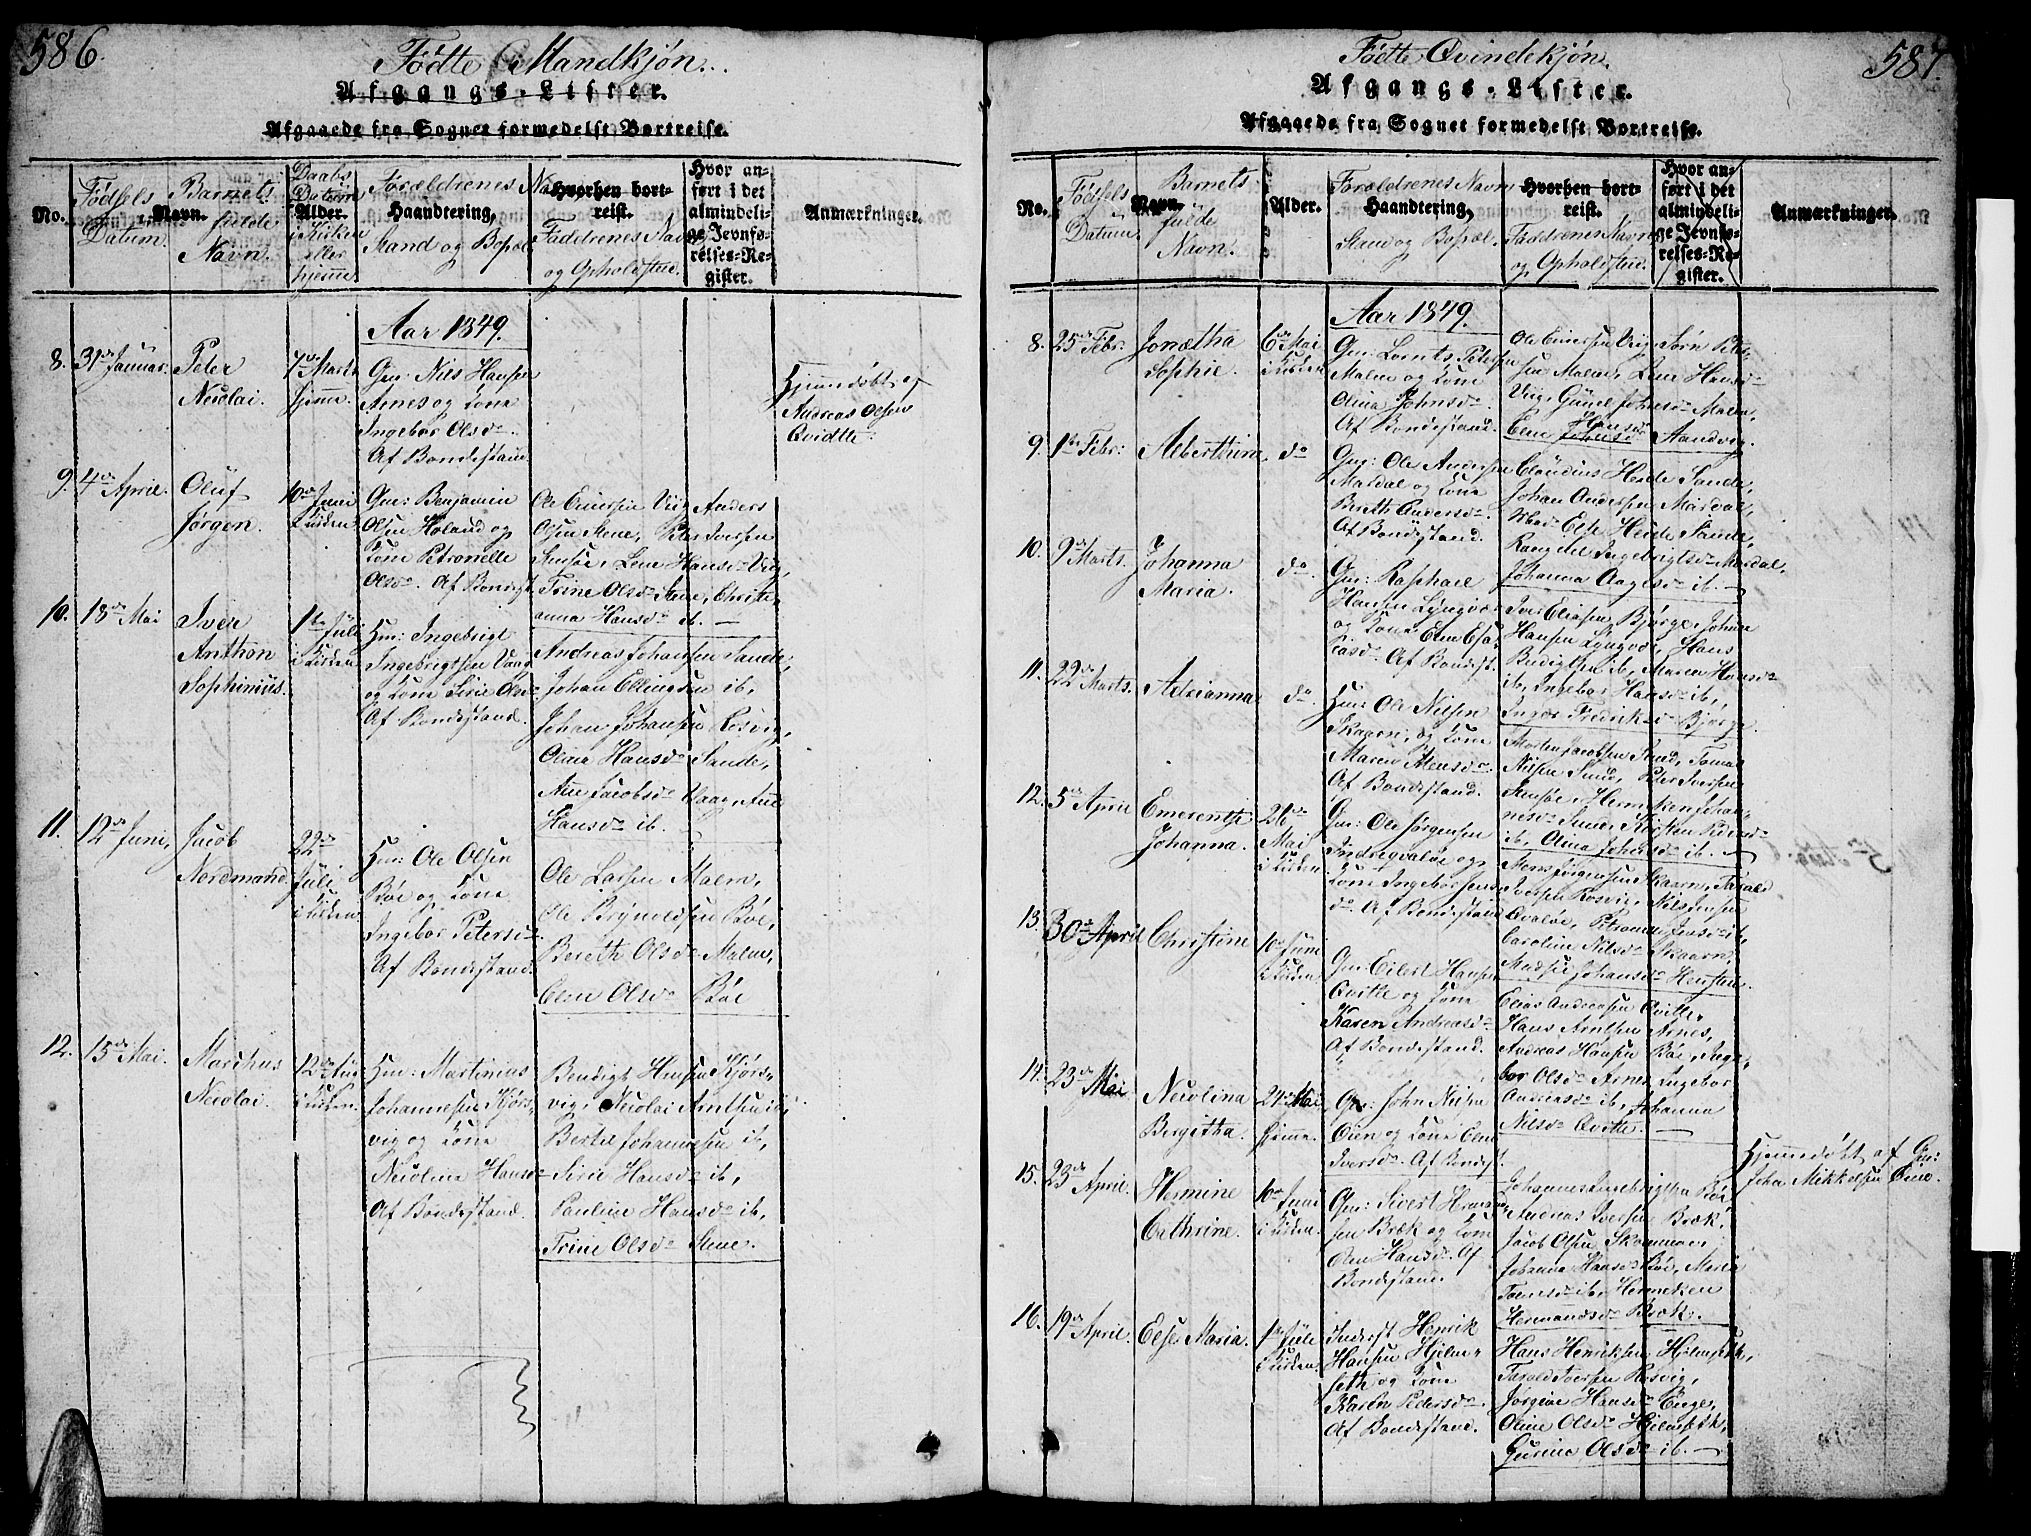 586.
Födte Mandkjøn.
Afgangs-Lister.
Afgaaede fra Sognet formedelst Bortreise.
No.
Fødsels
Datum.
Navn.
Barnets
fulde
Navn.
Daabs
Datum
Alder.
i Kirken
eller
hjemme
Forældrenes Navn
Haandtering,
Stand og Bopæl
Hvorhen bort-
reist.
Faddrenes Navn
og Opholdsted.
Hvor an-
ført i det
almindeli-
ge Jevnfø-
relses-Re-
gister.
Anmærkninger.
Aar 1849.
8. 31de Januar.
Peter
Nicolai.
7de Marts
hjemme
Gm: Nils Hansen
Arnes og Kone
Ingebor Olsdr
Af Bondestand.
Hjemmedøbt af
Andreas Olsen
Qvidtte.
9. 4de April.
Oluf
Jørgen.
10de Juni
i Kirken.
Gm: Benjamin
Olsen Høland og
Kone Petronelle
Olsdr. Af Bondest.
Ole Einersen Viig, Anders
Olsen Stene, Peter Iversen
Stensøe, Lene Hansdr Viig,
Trine Olsdr Stene, Christi-
anna Hansdr ib. —
10. 18de Mai
Iver
Anthon
Sophinius.
1ste Juli
i Kirken
Hm: Ingebrigt
Ingebrigtsen Vaag
og Kone Sirie Olsdr
Af Bondestand.
Andreas Johansen Sande,
Johan Ellingsen ib,
Johan Johansen Rosvig,
Olina Hansdr Sande,
Ane Jacobsdr Vaag, Ane
Hansdr ib. —
11. 12te Juni,
Jacob
Nordmand
22de
Juli
i Kirken
Hm: Ole Olsen
Böe og Kone
Ingebor Petersdr
Af Bondestand.
Ole Larsen Malm,
Ole Brynildsen Böe,
Bereth Olsdr Malm,
Elen Olsdr Böe
12. 15de Mai.
Marchus
Nicolai.
12te Aug
i Kirken.
Hm: Martinius
Johannesen Kjørs-
vig og Kone
Nicolina Hansdr
Af Bondestand.
Bendigt Hansen Kjørs-
vig, Nicolai Arntsen ib,
Bertil Johannesen ib,
Sirie Hansdr ib,
Pauline Hansdr ib,
Trine Olsdr Stene.
587.
Fødte Qvindekjøn.
Afgangs-Lister.
Afgaaede fra Sognet formedelst Bortreise.
No.
Fødsels
Datum.
Navn.
Barnets
fulde
Navn.
Alder.
Forældrenes Navn
Haandtering,
Stand og Bopæl
Hvorhen bort-
reist.
Faddrenes Navn
og Opholdsted.
Hvor an-
ført i det
almindeli-
ge Jevnfø-
relses-Re-
gister.
Anmærkninger.
Aar 1849.
8. 25de Febr.
Jonetha
Sophie.
6te Mai
i Kirken
Gm: Lornts Petersen
Malm og Kone
Olina Johnsdr.
Af Bondestand.
Ole Einersen Viig, Søren Peter-
sen Malm, Lene Hansdr
Viig, Gunel Johnsdr Malm,
Elen Hansdr Aandvig.
9. 1ste Febr:
Alberthine
do
Gm: Ole Andersen
Mardal og Kone
Bereth Andersdr.
Af Bondestand.
Claudius Heide Sande,
Johan Andersen Mardal,
Mad. Else Heide Sande,
Rangdel Ingebrigtsdr Mardal,
Johanna Aagesdr ib. —
10. 9de Marts.
Johanna
Maria.
do
Gm: Raphael
Hansen Lyngvær
og Kone Elen Esa-
iasdr. Af Bondest.
Iver Eliasen Bjørge, Johan
Hansen Lyngvær, Hans
Bendigtsen ib, Maren Hansdr
ib, Ingebor Hansdr ib,
Inger Fredriksdr Bjørge
11. 22de Marts.
Adrianna
do.
Hm: Ole Nilsen
Skaarn, og Kone
Maren Mensdr.
Af Bondestand.
Morten Jacobsen Sund, Tomas
Nilsen Sund, Peter Iversen
Stensøe, Hermeken Johan-
nesdr Sund, Kirsten Pedersdr
ib, Olina Johansdr ib. —
12. 5te April
Emerentse
Johanna.
26de
Mai
i Kirken
Gm: Ole Jørgensen
Indregvaløe og
Kone Ingebor Jens-
dr. Af Bondestand
Mens Jørgensen Skaarn, Tarald
Iversen Rosvig, Nils Jensen
Qvaløe, Petronel Jensdr ib,
Caroline Nilsdr Skaarn,
Madsie Johansdr Hensten.
13. 30te April
Christine
10de Juni
i Kirken
Gm: Eilert Hansen
Qvitte og Kone
Karen Andreasdr
Af Bondestand.
Elias Andreasen Qvitte,
Hans Arntsen Arnes,
Andreas Hansen Böe, Inge-
bor Olsdr Arnes, Ingebor
Andreasdr ib, Johanna
Nilsdr Qvitte. —
14. 23de Mai
Nicolina
Bergitha.
24de Mai
hjemme.
Gm: John Nilsen
Öien og Kone Elen
Iversdr. Af Bondest.
Hjemmedøbt af Gm:
John Mikkelsen Öien.
15. 23de April.
Hermine
Cathrine.
10de Juni
i Kirken.
Gm: Sivert Herman-
sen Bræk og Kone
Elen Hansdr. Af
Bondestand.
Johannes Ingebrigtsen Böe
Andreas Iversen Bræk,
Jacob Olsen Skommen,
Johanna Hansdr Böe, Maria
Toensdr ib, Hermeken
Hermandsdr Bræk.
16. 19de April.
Else Maria.
1ste Juli
i Kirken.
Inderst Henrik
Hansen Hjelm-
seth og Kone
Karen Pedersdr
Af Bondestand.
Hans Henriksen Hjelmseth,
Tarald Iversen Rosvig,
Jørgine Hansdr Enge,
Oline Olsdr Hjelmseth,
Gurina Olsdr ib. —